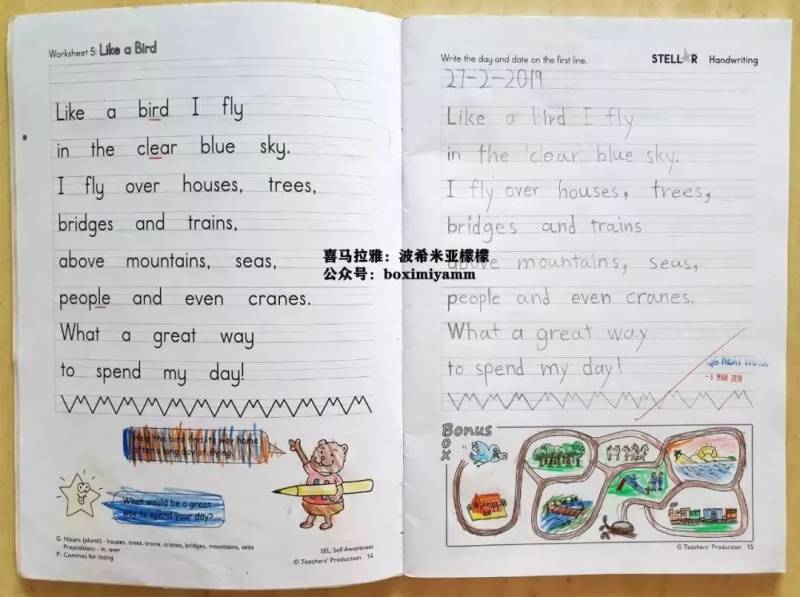 Worksheet 5: Like a Bird
Like a bird I fly
in the clear blue sky.
I fly over houses, trees,
bridges and trains,
above mountains, seas,
people and even cranes.
What a great way
to spend my day!
Help the bird find its way home
after a long day of flying.
What would be a great
way to spend your day?
G: Nouns (plural) - houses, trees, trains, cranes, bridges, mountains, seas
Prepositions - in, over
P: Commas for listing
SEL: Self Awareness
© Teachers' Production 14
Write the day and date on the first line.
STELLAR Handwriting
27-2-2019
Like a bird I fly
in the clear blue sky.
I fly over houses, trees,
bridges and trains
above mountains, seas,
people and even cranes.
What a great way
to spend my day!
NEAT WORK
- 6 MAR 2019
Bonus
BOX
© Teachers' Production 15
喜马拉雅：波希米亚檬檬
公众号：boximiyamm